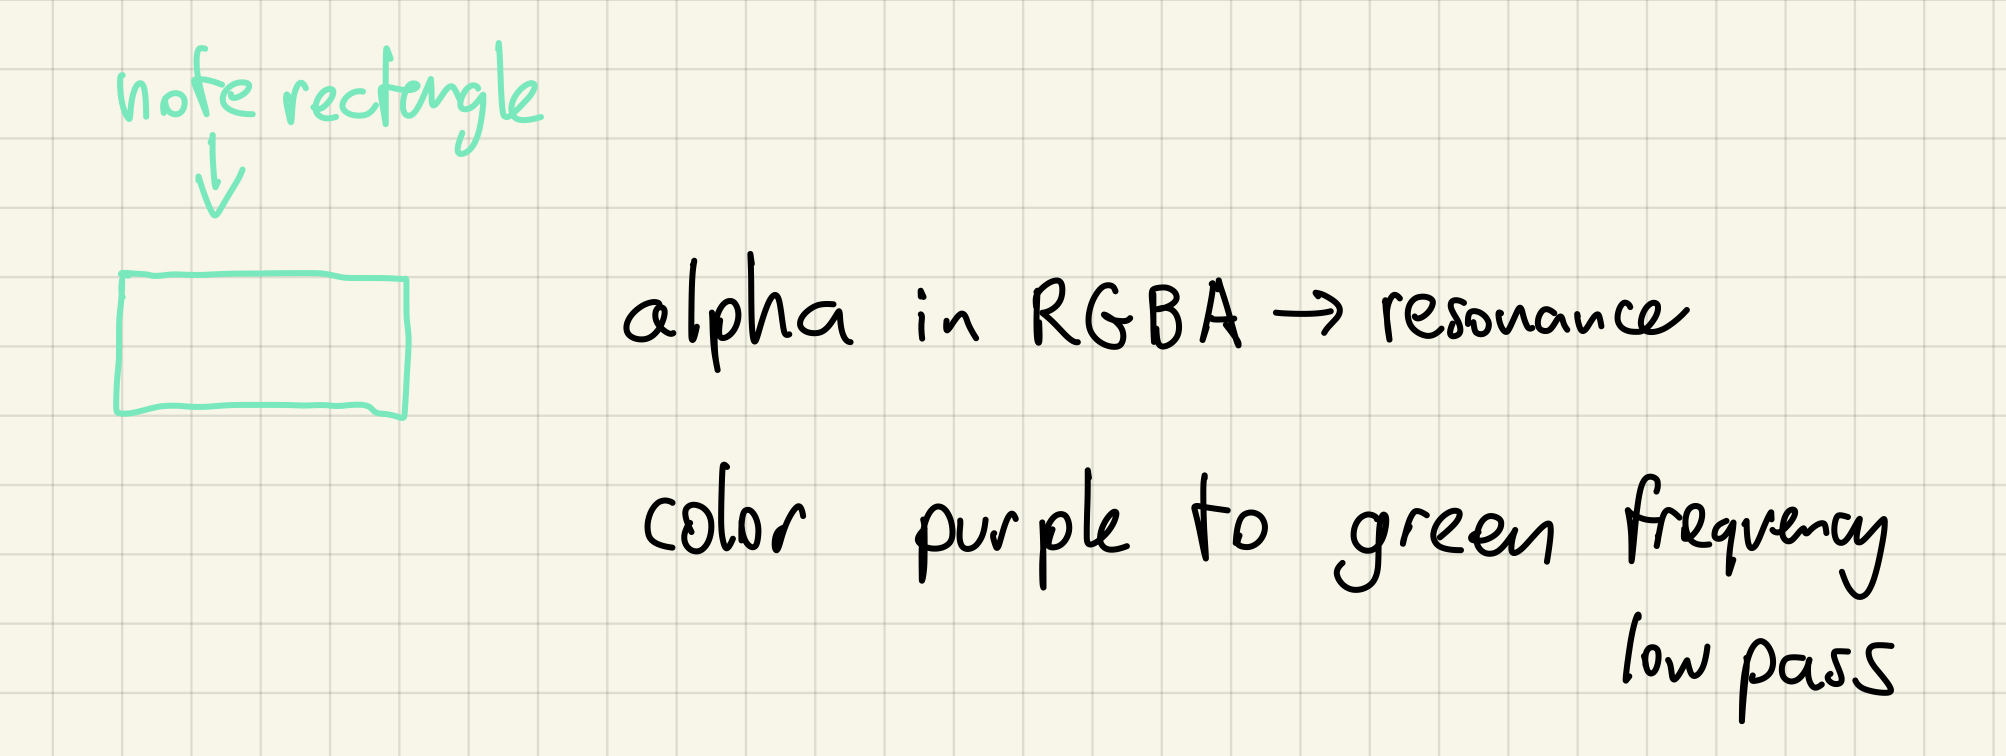 note rectangle
alpha in RGBA → resonance
color purple to green frequency
low pass